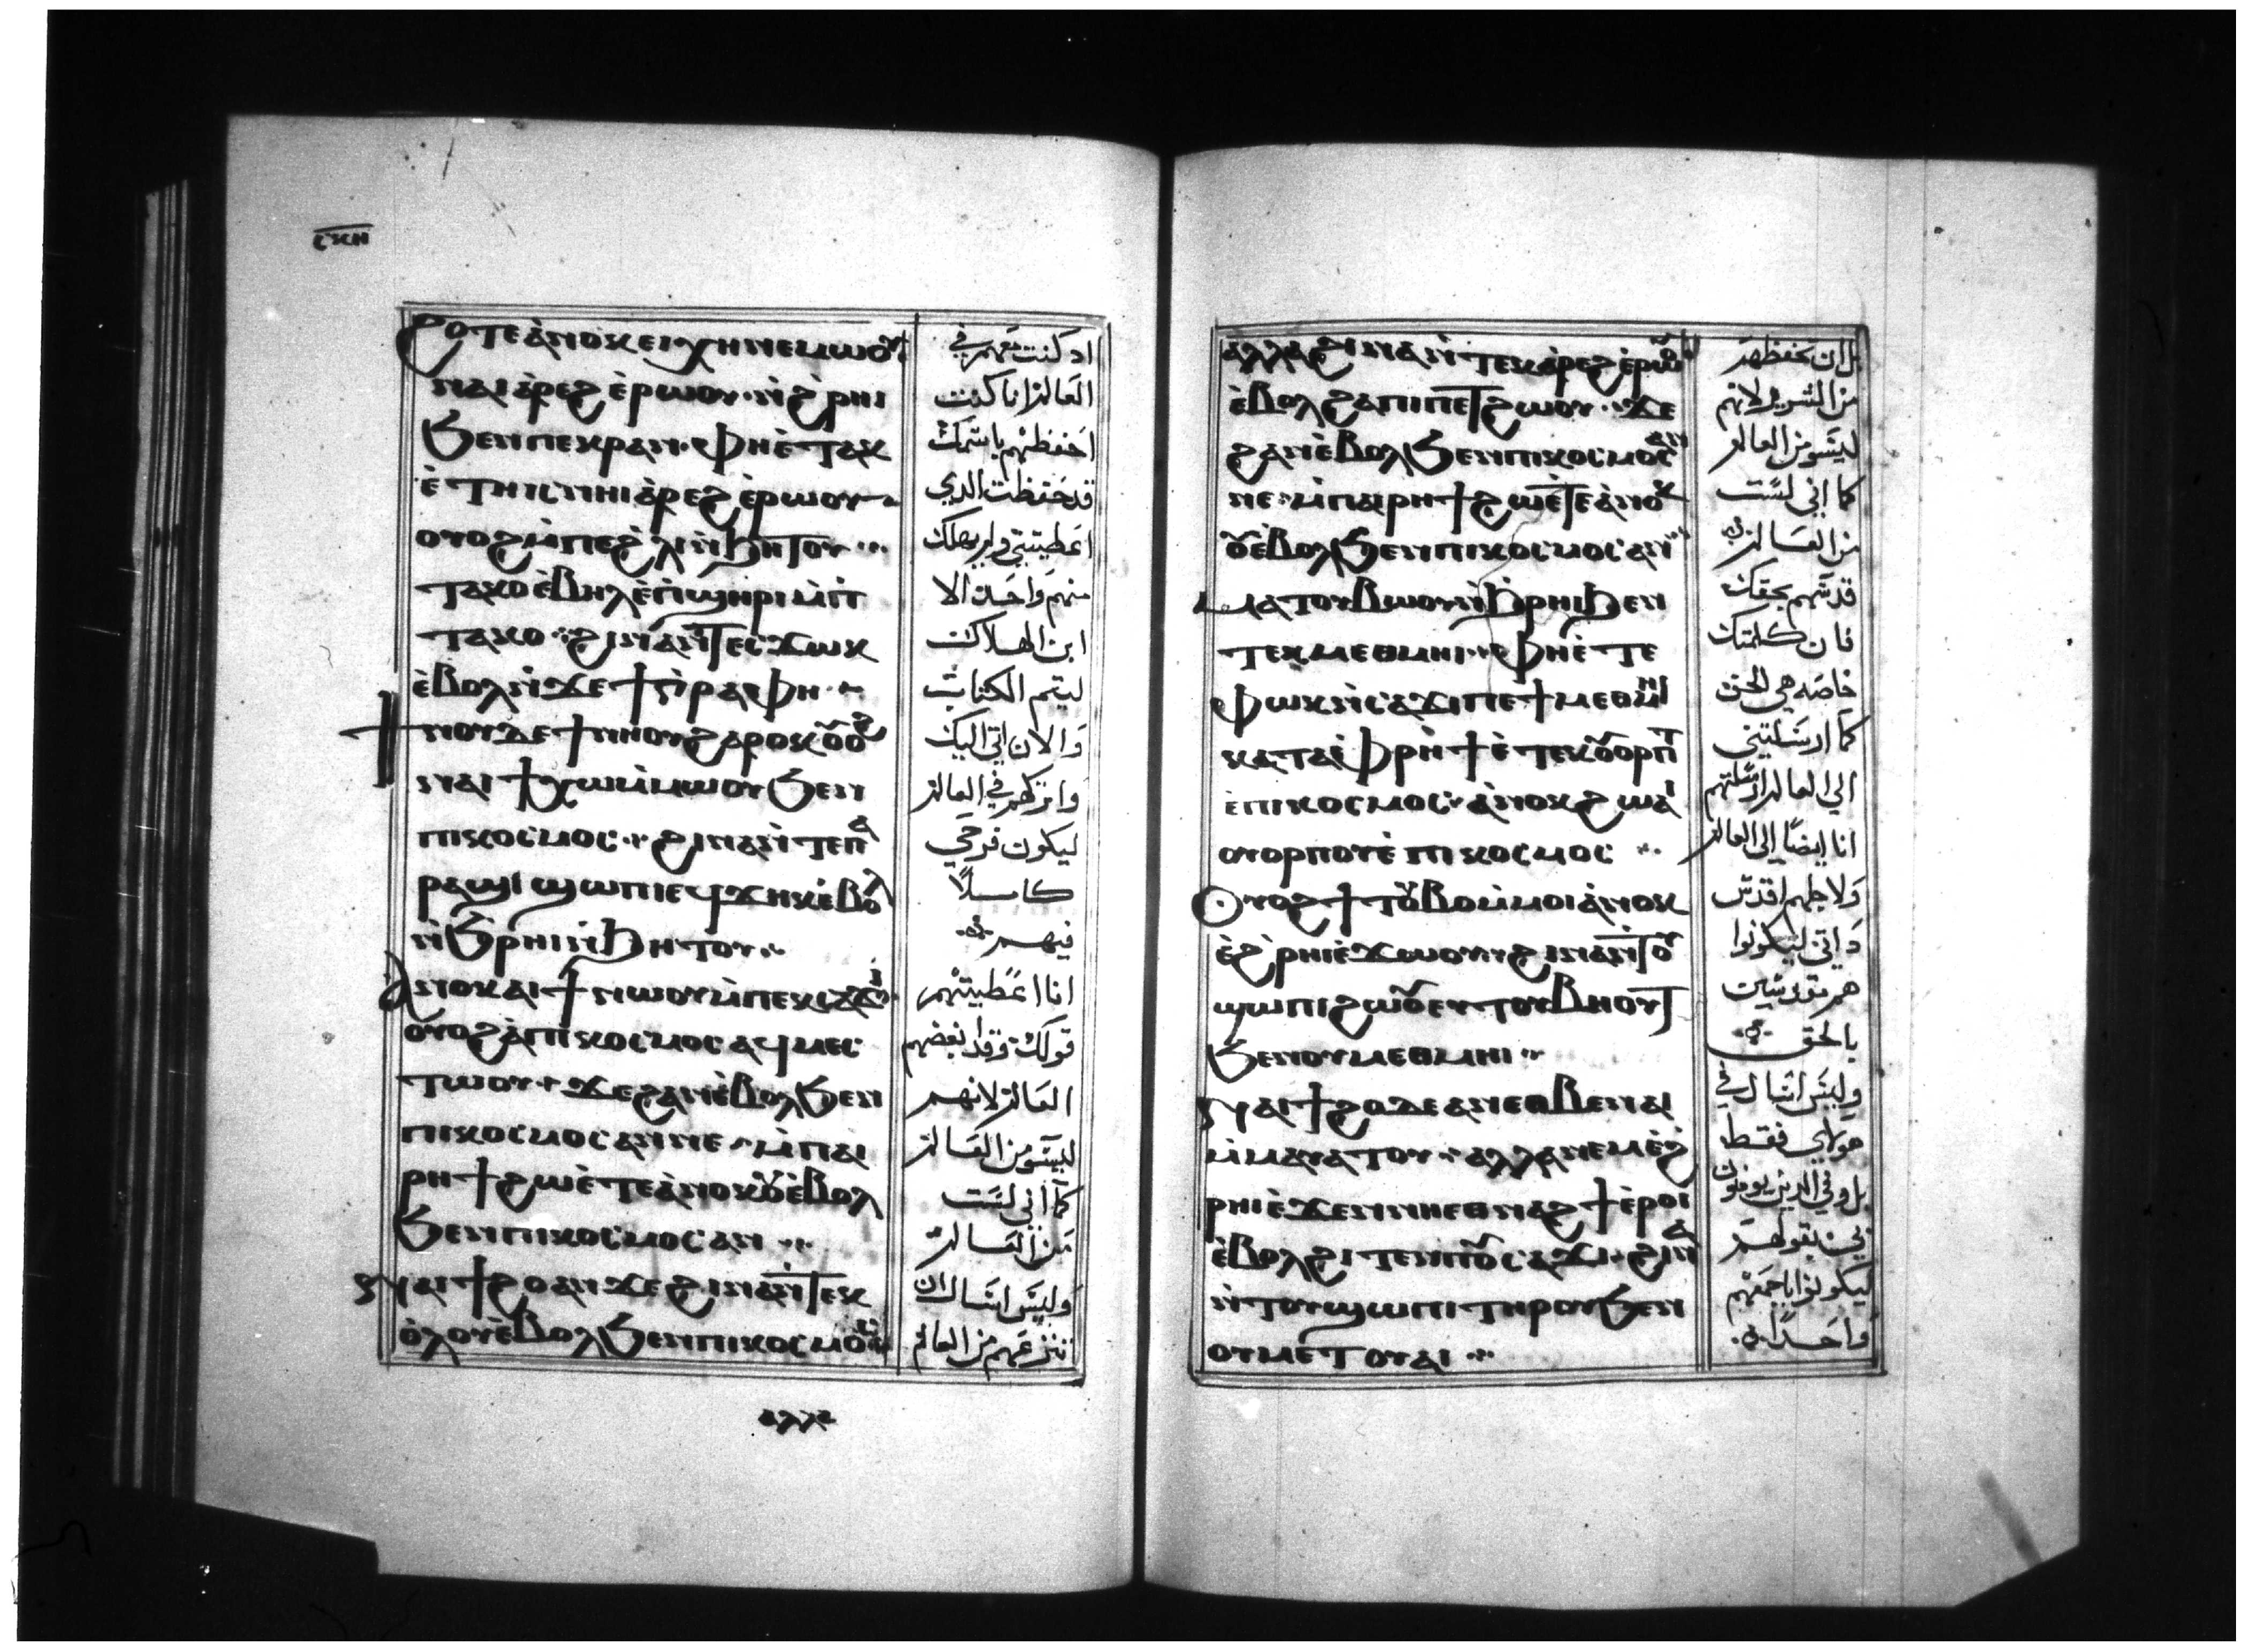 ⲥⲕⲏ
ϩⲟⲧⲉ ⲁ̀ⲛⲟⲕ ⲉⲓⲭⲏ ⲛⲉⲙⲱⲟⲩ
ⲛⲁⲓ ⲁ̀ⲣⲉϩ ⲉ̀ⲣⲱⲟⲩ· ⲛ̀ϩ̀ⲣⲏⲓ
ϧⲉⲛ ⲡⲉⲕⲣⲁⲛ· ⲫⲏ ⲉ̀ⲧⲁⲕ
ⲉ̀ ⲧⲏⲓϥ ⲛⲏⲓ ⲁ̀ⲣⲉϩ ⲉ̀ⲣⲱⲟⲩ
ⲟⲩⲟϩ ⲙ̀ⲡⲉ ϩ̀ⲗⲓ ⲛ̀ϧⲏⲧⲟⲩ
ⲧⲁⲕⲟ ⲉ̀ⲃⲏⲗ ⲉ̀ⲡϣⲏⲣⲓ ⲙ̀ⲡ
ⲧⲁⲕⲟ ϩⲓⲛⲁ ⲛ̀ⲧⲉⲥϫⲱⲕ
ⲉ̀ⲃⲟⲗ ⲛ̀ϫⲉ ϯⲅ̀ⲣⲁⲫⲏ
ϯⲛⲟⲩ ⲇⲉ ϯⲛⲏⲟⲩ ϩⲁⲣⲟⲕ ⲟⲩⲟϩ
ⲛⲁⲓ ϯⲭⲱ ⲙ̀ⲙⲱⲟⲩ ϧⲉⲛ
ⲡⲓⲕⲟⲥⲙⲟⲥ ϩⲓⲛⲁ ⲛ̀ⲧⲉ ⲡⲁ
ⲣⲁϣⲓ ϣⲱⲡⲓ ⲉϥϫⲏⲕ ⲉ̀ⲃⲟⲗ
ⲛ̀ϧ̀ⲣⲏⲓ ⲛ̀ϧⲏⲧⲟⲩ
ⲁⲛⲟⲕ ⲁⲓϯ ⲛⲱⲟⲩ ⲙ̀ⲡⲉⲕⲥⲁϫⲓ
ⲟⲩⲟϩ ⲁ̀ ⲡⲓⲕⲟⲥⲙⲟⲥ ⲁϥⲙⲉⲥ
ⲧⲱⲟⲩ ϫⲉ ϩⲁⲛⲉ̀ⲃⲟⲗ ϧⲉⲛ
ⲡⲓⲕⲟⲥⲙⲟⲥ ⲁⲛ ⲛⲉ ⲙ̀ⲡⲁⲓ
ⲣⲏϯ ϩⲱ ⲉ̀ⲧⲉ ⲁ̀ⲛⲟⲕ ⲟⲩⲉ̀ⲃⲟⲗ
ϧⲉⲛ ⲡⲓⲕⲟⲥⲙⲟⲥ ⲁⲛ
ⲛⲁⲓϯϩⲟ ⲁⲛ ϫⲉ ϩⲓⲛⲁ ⲛ̀ⲧⲉⲕ
ⲟ̀ⲗⲟⲩ ⲉ̀ⲃⲟⲗ ϧⲉⲛ ⲡⲓⲕⲟⲥⲙⲟⲥ
ⲁⲗⲗⲁ
اد كنت معهم في
العالم انا كنت
احفظهم باسمك
قد حفظت الدي
اعطيتني ولم يهلك
منهم واحد الا
ابن الهلاك
ليتم الكتاب
والان اتي اليك
واتركهم في العالم
ليكون فرحي
كاملاً
فيهم
انا اعطيتهم
قولك وقد ابغضهم
العالم لانهم
ليسو من العالم
كما اني لست
من العالم
وليس اسال ان
تنزعهم من العالم
ⲁⲗⲗⲁ ϩⲓⲛⲁ ⲛ̀ⲧⲉⲕⲁ̀ⲣⲉϩ ⲉ̀ⲣⲱⲟⲩ
ⲉ̀ⲃⲟⲗ ϩⲁ ⲡⲓⲡⲉⲧϩⲱⲟⲩ ϫⲉ
ϩⲁⲛⲉ̀ⲃⲟⲗ ϧⲉⲛ ⲡⲓⲕⲟⲥⲙⲟⲥ ⲁⲛ
ⲛⲉ ⲙ̀ⲡⲁⲓⲣⲏϯ ϩⲱ ⲉ̀ⲧⲉ ⲁ̀ⲛⲟⲕ
ⲟⲩⲉ̀ⲃⲟⲗ ϧⲉⲛ ⲡⲓⲕⲟⲥⲙⲟⲥ ⲁⲛ
ⲙⲁⲧⲟⲩⲃⲱⲟⲩ ⲛ̀ϧ̀ⲣⲏⲓ ϧⲉⲛ
ⲧⲉⲕⲙⲉⲑⲙⲏⲓ ⲫⲏ ⲉ̀ⲧⲉ
ⲫⲱⲕ ⲛ̀ⲥⲁϫⲓ ⲡⲉ ϯⲙⲉⲑⲙⲏⲓ
ⲕⲁⲧⲁ ⲫ̀ⲣⲏϯ ⲉ̀ⲧⲉⲕⲟⲩⲟⲣⲡⲧ
ⲉ̀ⲡⲓⲕⲟⲥⲙⲟⲥ ⲁ̀ⲛⲟⲕ ϩⲱ ⲁⲓ
ⲟⲩⲟⲣⲡⲟⲩ ⲉ̀ⲡⲓⲕⲟⲥⲙⲟⲥ
ⲟⲩⲟϩ ϯⲧⲟⲩⲃⲟ ⲙ̀ⲙⲟⲓ ⲁ̀ⲛⲟⲕ
ⲉ̀ϩ̀ⲣⲏⲓ ⲉ̀ϫⲱⲟⲩ ϩⲓⲛⲁ ⲛ̀ⲧⲟⲩ
ϣⲱⲡⲓ ϩⲱⲟⲩ ⲉⲩⲧⲟⲩⲃⲏⲟⲩⲧ
ϧⲉⲛ ⲟⲩⲙⲉⲑⲙⲏⲓ
ⲛⲁⲓϯϩⲟ ⲇⲉ ⲁⲛ ⲉⲑⲃⲉ ⲛⲁⲓ
ⲙ̀ⲙⲁⲩⲁⲧⲟⲩ ⲁⲗⲗⲁ ⲛⲉⲙ ⲉ̀ϩ̀
ⲣⲏⲓ ⲉ̀ϫⲉⲛ ⲛⲏ ⲉⲑⲛⲁϩϯ ⲉ̀ⲣⲟⲓ
ⲉ̀ⲃⲟⲗ ϩⲓⲧⲉⲛ ⲡⲟⲩⲥⲁϫⲓ ϩⲓⲛⲁ
ⲛ̀ⲧⲟⲩϣⲱⲡⲓ ⲧⲏⲣⲟⲩ ϧⲉⲛ
ⲟⲩⲙⲉⲧⲟⲩⲁⲓ
بل ان تحفظهم
من الشرير لانهم
ليسو من العالم
كما اني لست
من العالم
قدسهم بحقك
فان كلمتك
خاصه هي الحق
كما ارسلتني
الي العالم ارسلتهم
انا ايضاً الي العالم
ولاجلهم اقدس
داتي ليكونوا
هم مقدسين
بالحق
وليس اسال في
هولاي فقط
بل وفي الدين يومنون
بي بقولهم
ليكونوا باجمعهم
واحداً